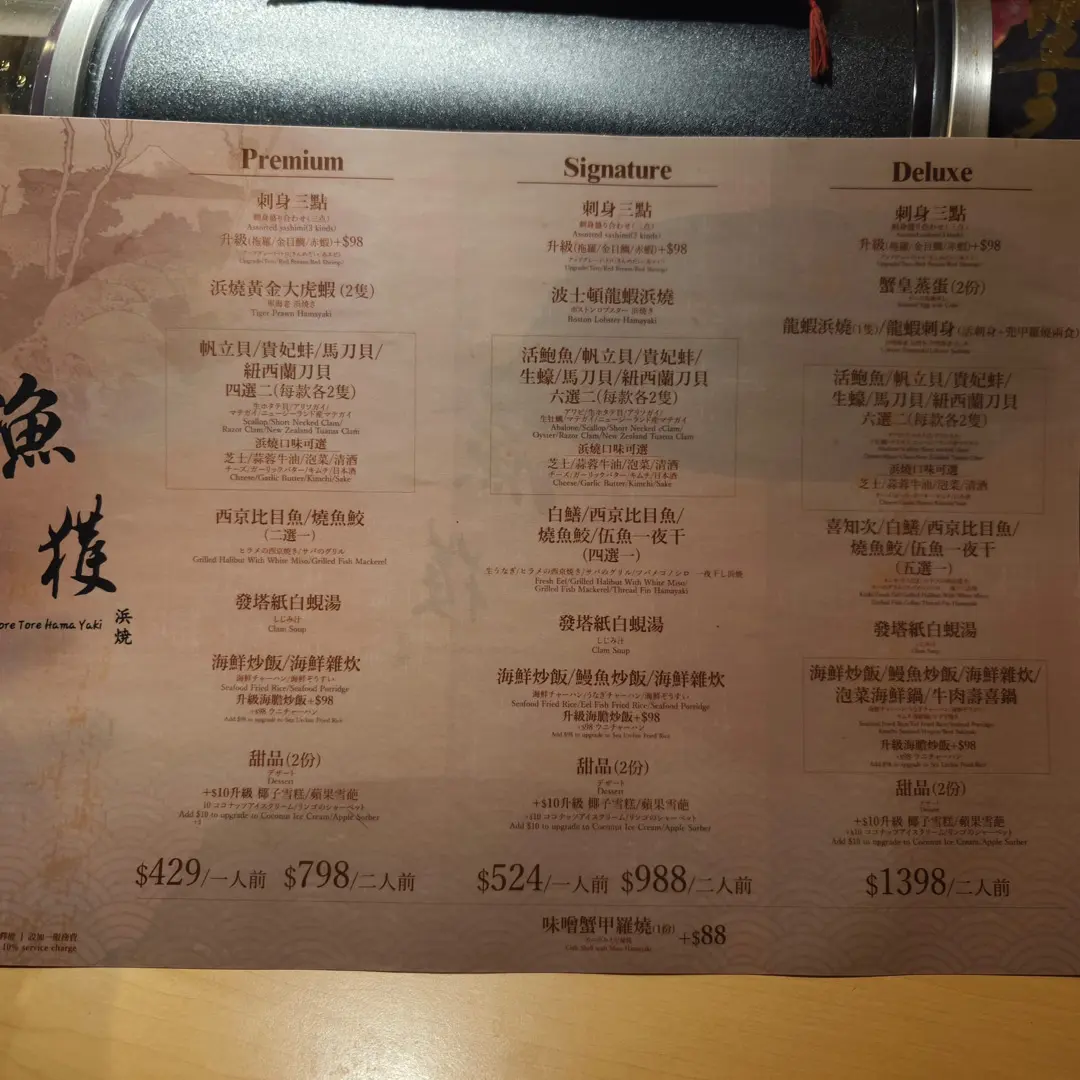 漁
獲
Tore Hama Yaki
浜
燒
10% service charge
Premium
刺身三點
刺身盛り合わせ(三点)
Assorted sashimi(3 kinds)
升級(拖羅/金目鯛/赤蝦)+$98
浜燒黃金大虎蝦(2隻)
Tiger Prawn Hamayaki
帆立貝/貴妃蚌/馬刀貝/
紐西蘭刀貝
四選二(每款各2隻)
生ホタテ貝/アリソガイ/
マテガイ/ニュージーランド産マテガイ
Scallop/Short Necked Clam/
Razor Clam/New Zealand Tuatua Clam
浜燒口味可選
芝士/蒜蓉牛油/泡菜/清酒
チーズ/ガーリックバター/キムチ/日本酒
Cheese/Garlic Butter/Kimchi/Sake
西京比目魚/燒魚鮫
(二選一)
ヒラメの西京焼き/サバのグリル
Grilled Halibut With White Miso/Grilled Fish Mackerel
發塔紙白蜆湯
しじみ汁
Clam Soup
海鮮炒飯/海鮮雜炊
海鮮チャーハン/海鮮ぞうすい
Seafood Fried Rice/Seafood Porridge
升級海膽炒飯+$98
+$98 ウニチャーハン
Add $98 to upgrade to Sea Urchin Fried Rice
甜品(2份)
デザート
Dessert
+$10升級 椰子雪糕/蘋果雪葩
10 ココナッツアイスクリーム/リンゴのシャーベット
Add $10 to upgrade to Coconut Ice Cream/Apple Sorbet
$429/一人前 $798/二人前
Signature
刺身三點
刺身盛り合わせ(三点)
Assorted sashimi(3 kinds)
升級(拖羅/金目鯛/赤蝦)+$98
波士頓龍蝦浜燒
ボストンロブスター 浜焼き
Boston Lobster Hamayaki
活鮑魚/帆立貝/貴妃蚌/
生蠔/馬刀貝/紐西蘭刀貝
六選二(每款各2隻)
アワビ/生ホタテ貝/アリソガイ/
生牡蠣/マテガイ/ニュージーランド産マテガイ
Abalone/Scallop/Short Necked Clam/
Oyster/Razor Clam/New Zealand Tuatua Clam
浜燒口味可選
芝士/蒜蓉牛油/泡菜/清酒
チーズ/ガーリックバター/キムチ/日本酒
Cheese/Garlic Butter/Kimchi/Sake
白鱔/西京比目魚/
燒魚鮫/伍魚一夜干
(四選一)
生うなぎ/ヒラメの西京焼き/サバのグリル/ツバメコノシロ 一夜干し浜焼
Fresh Eel/Grilled Halibut With White Miso/
Grilled Fish Mackerel/Thread Fin Hamayaki
發塔紙白蜆湯
しじみ汁
Clam Soup
海鮮炒飯/鰻魚炒飯/海鮮雜炊
海鮮チャーハン/うなぎチャーハン/海鮮ぞうすい
Seafood Fried Rice/Eel Fish Fried Rice/Seafood Porridge
升級海膽炒飯+$98
+$98 ウニチャーハン
Add $98 to upgrade to Sea Urchin Fried Rice
甜品(2份)
デザート
Dessert
+$10升級 椰子雪糕/蘋果雪葩
+$10 ココナッツアイスクリーム/リンゴのシャーベット
Add $10 to upgrade to Coconut Ice Cream/Apple Sorbet
$524/一人前 $988/二人前
Deluxe
刺身三點
刺身盛り合わせ(三点)
升級(拖羅/金目鯛/赤蝦)+$98
蟹皇蒸蛋(2份)
龍蝦浜燒(1隻)/龍蝦刺身
活鮑魚/帆立貝/貴妃蚌/
生蠔/馬刀貝/紐西蘭刀貝
六選二(每款各2隻)
浜燒口味可選
芝士/蒜蓉牛油/泡菜/清酒
喜知次/白鱔/西京比目魚/
燒魚鮫/伍魚一夜干
(五選一)
發塔紙白蜆湯
しじみ汁
Clam Soup
海鮮炒飯/鰻魚炒飯/海鮮雜炊/
泡菜海鮮鍋/牛肉壽喜鍋
升級海膽炒飯+$98
+$98 ウニチャーハン
Add $98 to upgrade to Sea Urchin Fried Rice
甜品(2份)
デザート
Dessert
+$10升級 椰子雪糕/蘋果雪葩
+$10 ココナッツアイスクリーム/リンゴのシャーベット
Add $10 to upgrade to Coconut Ice Cream/Apple Sorbet
$1398/二人前
味噌蟹甲羅燒(1份) +$88